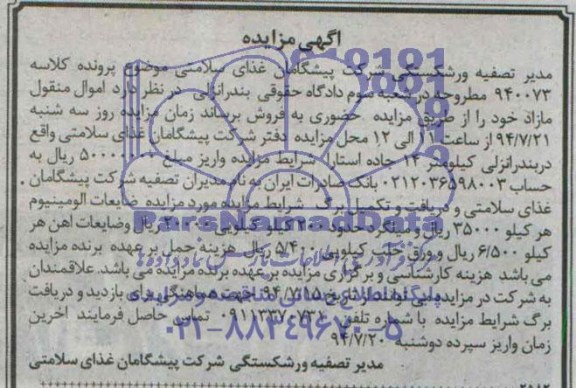 آگهی مزایده
مدیر تصفیه ورشکستگی شرکت پیشگامان غذای سلامتی موضوع پرونده کلاسه
۹۴۰۰۷۳ مطروحه در شعبه سوم دادگاه حقوقی بندرانزلی در نظر دارد اموال منقول
مازاد خود را از طریق مزایده حضوری به فروش برساند زمان مزایده روز سه شنبه
۹۴/۷/۲۱ از ساعت ۱۱ الی ۱۲ محل مزایده دفتر شرکت پیشگامان غذای سلامتی واقع
دربندرانزلی کیلومتر ۱۴ جاده آستارا شرایط مزایده واریز مبلغ ریال به
حساب ۰۲۱۲۰۳۶۵۹۸۰۰۳ بانک صادرات ایران به نام مدیران تصفیه شرکت پیشگامان
غذای سلامتی و دریافت و تکمیل برگ شرایط مزایده مورد مزایده ضایعات الومینیوم
هر کیلو ۳۵۰۰۰ ریال و میلگرد حدود ۲۰۰ کیلو کیلویی ریال وضایعات اهن هر
کیلو ۶/۵۰۰ ریال و ورق حلب کیلویی ۵/۴۰۰ ریال هزینه حمل بر عهده برنده مزایده
می باشد هزینه کارشناسی و برگزاری مزایده بر عهده برنده مزایده می باشد. علاقمندان
به شرکت در مزایده می توانند از تاریخ ۹۴/۷/۱۵ جهت هماهنگی برای بازدید و دریافت
برگ شرایط مزایده با شماره تلفن ۰۹۱۱۳۳۷۰۷۳۱ تماس حاصل فرمایند آخرین
زمان واریز سپرده دوشنبه ۹۴/۷/۲۰
مدیر تصفیه ورشکستگی شرکت پیشگامان غذای سلامتی
ParsNamadData
۰۲۱-۸۸۳۴۹۶۷۰-۵